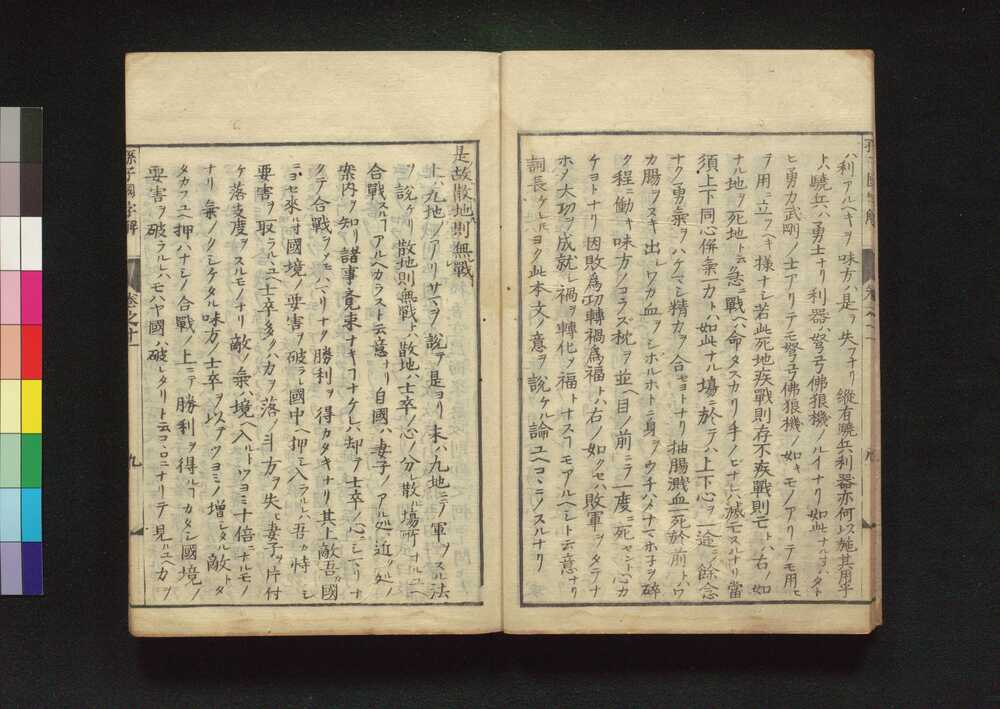 ハ利アルヘキヲ味方ハ是ヲ失フナリ縱有驍兵利器亦何以施其用乎
ト驍兵ハ勇士ナリ利器ハ弩弓佛狼機ノルイナリ如此ナル
ヒ勇力武剛ノ士アリテモ弩弓佛狼機ノ如キモノアリテモ用ヒ
ヲ用ニ立ツヘキ様ナシ若此死地疾戰則存不疾戰則亡トハ右ノ如
ナル地ヲ死地ト云急ニ戰ヘハ命タスカリ手ノヒナレハ滅モスルナリ當
須上下同心併氣一力トハ如此ナル場ニ於テハ上下心ヲ一途ニ餘念
ナク勇氣ヲハケマシ精力ヲ合セヨトナリ抽腸濺血一死於前トハワ
カ腸ヲヌキ出シワカ血ヲシボルホトニ身ヲウチハメナマホネヲ碎
ク程働キ味方ノコラズ枕ヲ並ヘ目ノ前ニテ一度ニ死セントニ心カ
ケヨトナリ因敗爲功轉禍爲福トハ右ノ如クセハ敗軍ヲタテナ
ホシ大功ヲ成就シ禍ヲ轉化シ福トナスコモアルヘシト云意ナリ
詞長ケレ𪜈ヨク此本文ノ意ヲ說ケル論ユヘコヽニノスルナリ
是故散地則無戰
上ハ九地ノアリサマヲ說テ是ヨリ末ハ九地ニテ軍ヲスル法
ヲ說ケリ散地則無戰トハ散地ハ士卒ノ心ノ分レ散ル場所ナルユヘ
合戰スルコアルヘカラスト云意ナリ自國ハ妻子ノアル処近ク処ノ
案内ヲ知リ諸事覚束ナキコナケレハ却テ士卒ノ心シマリナ
クテ合戰ヲツモハマリナク勝利ヲ得カタキナリ其上敵吾國
ニヨセ來ル寸國境ノ要害ヲ破ラレ國中ヘ押シ入ラルレハ吾カ恃シ
要害ヲ取ラルヽユヘ士卒多クハ力ヲ落シ斗方ヲ失ヒ妻子ヲ片付
ケ落支度ヲスルモノナリ敵ノ氣ハ境ヘ入ルトツヨミ十倍ニナルモノ
ナリ氣ノクシケタル味方ノ士卒ヲ以テツヨミノ增シタル敵ト
タカフユヘ押ハナシノ合戰ノ上ニテ勝利ヲ得ルコカタシ國境ノ
要害ヲ破ラルレハモハヤ國ハ破レタリト云コヽロニナリテ見ルユヘ力ヲ
孫子國字解
卷之十一
九